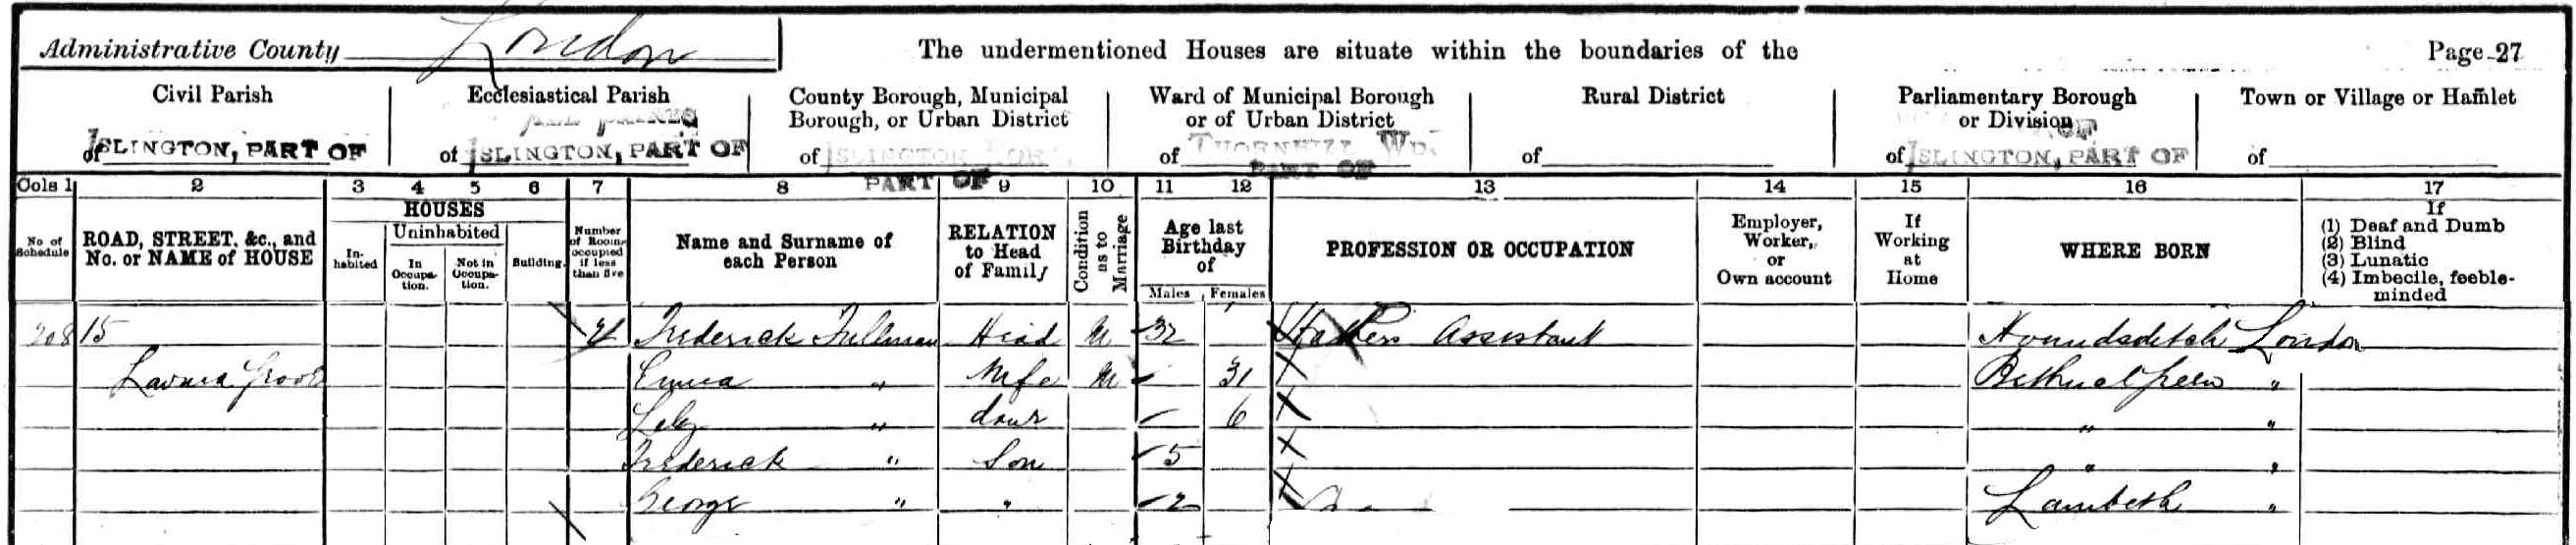 Administrative County London The undermentioned Houses are situate within the boundaries of the Page 27
Civil Parish Ecclesiastical Parish County Borough, Municipal Borough, or Urban District Ward of Municipal Borough or of Urban District Rural District Parliamentary Borough or Division Town or Village or Hamlet
of ISLINGTON, PART OF of ISLINGTON, PART OF of ISLINGTON PART OF of THORNHILL WD. PART OF of of ISLINGTON, PART OF of
Cols 1 2 3 4 5 6 7 8 9 10 11 12 13 14 15 16 17
No of Schedule ROAD, STREET, &c., and No. or NAME of HOUSE HOUSES In-habited Uninhabited In Occupa-tion. Not in Occupa-tion. Building. Number of Rooms occupied if less than five Name and Surname of each Person RELATION to Head of Family Condition as to Marriage Age last Birthday of Males Females PROFESSION OR OCCUPATION Employer, Worker, or Own account If Working at Home WHERE BORN If (1) Deaf and Dumb (2) Blind (3) Lunatic (4) Imbecile, feeble-minded
208 15 Frederick Fullman Head M 32 Assistant Houndsditch London
Grove Emma " Wife M 31 Bethnal Green "
Lily " daur 6 " "
Frederick " Son 5 " "
George " " 2 Lambeth "